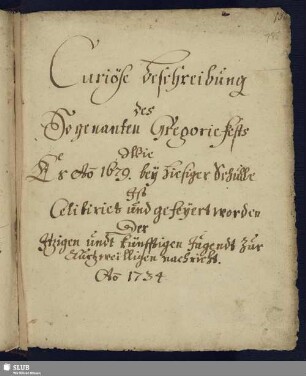 Curiöse beschreibung
des
So genanten Gregoriefests
Wie
Es Aõ 1679. bey hiesiger Schulle
Ist
Celebriret und gefeyert worden
Der
itzigen undt künfftigen Jugendt zur
Kurtzweilligen nachricht.
Aõ 1734
SLUB
Wir führen Wissen.